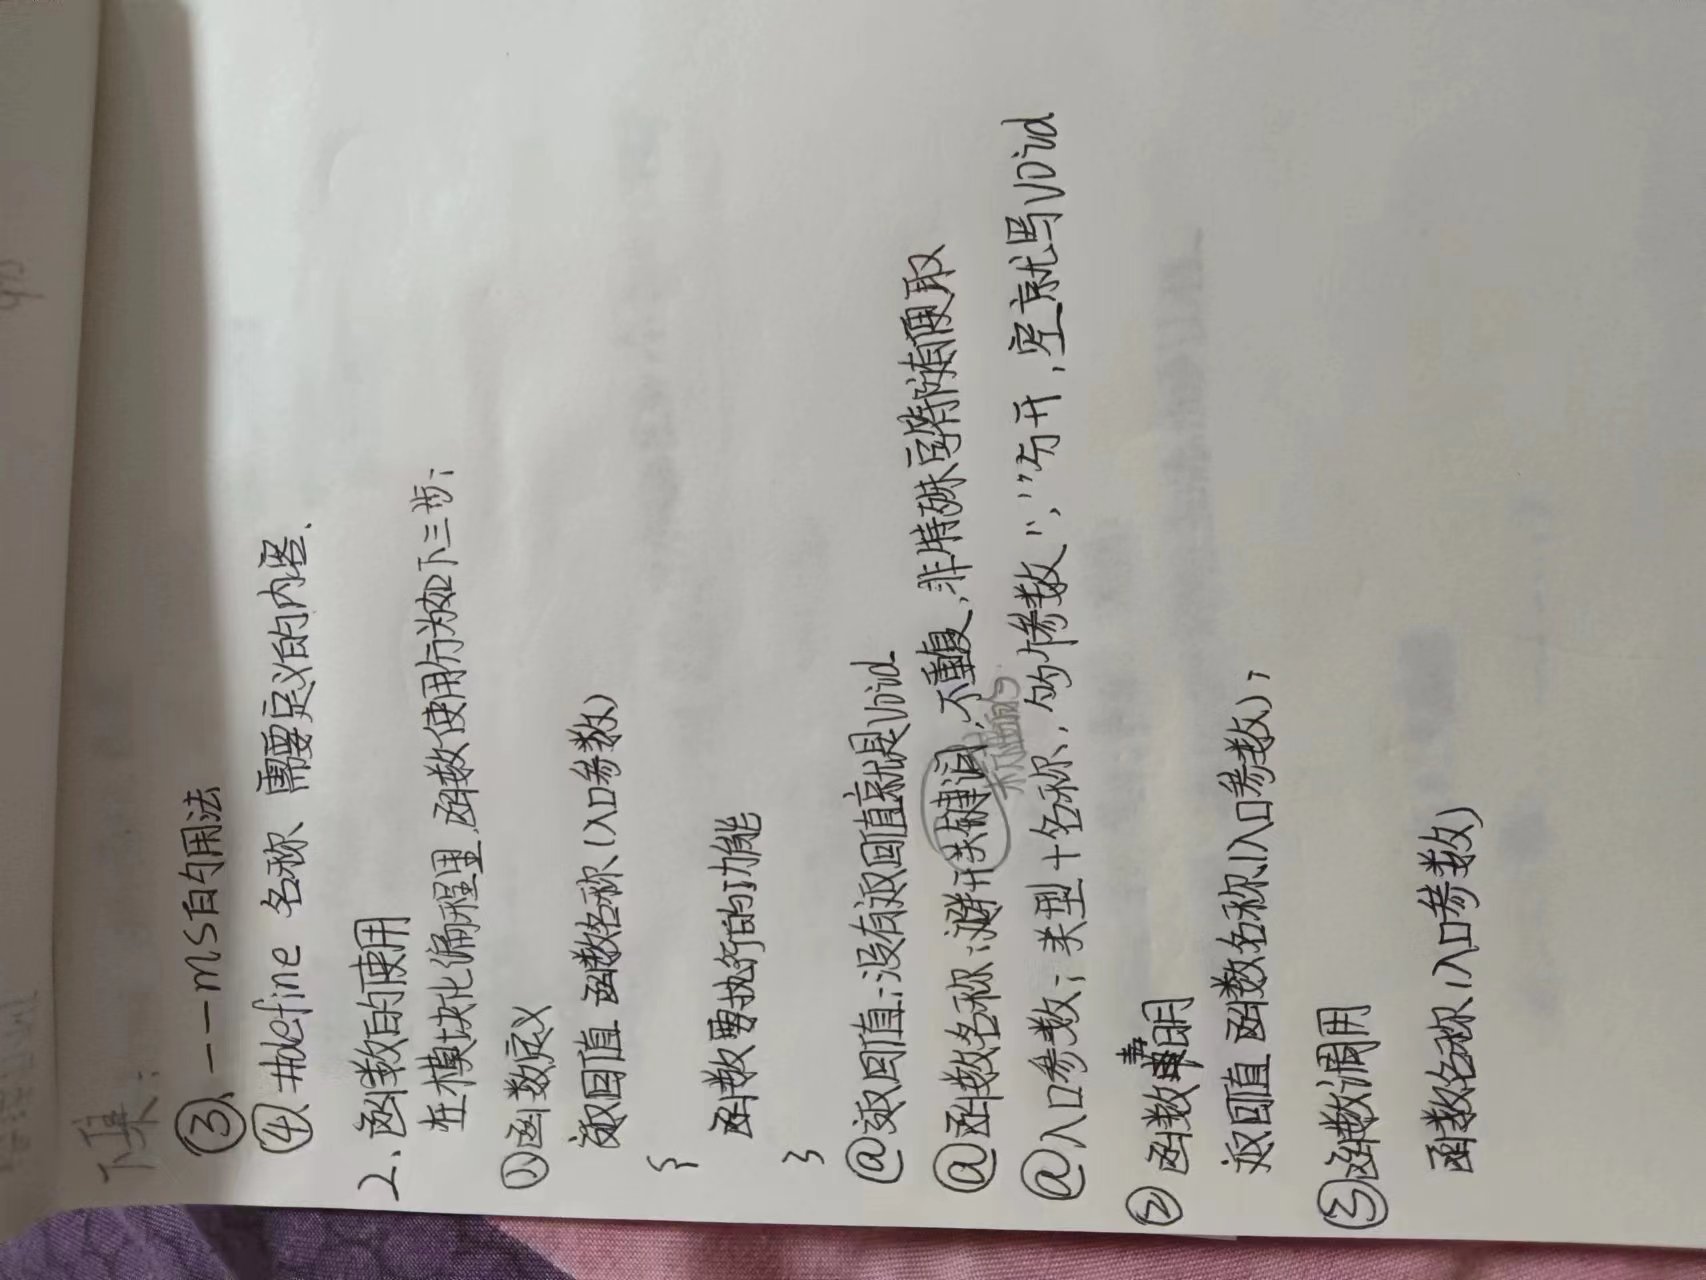 下集:
③、---ms的用法
④ #define 名称 需要定义的内容.
2、函数的使用
在模块化编程里,函数使用分为如下三步:
① 函数定义
返回值 函数名称(入口参数)
{
函数要执行的功能
}
@返回值:没有返回值就是void
@函数名称:避开关键词,不重复,非特殊字符随便取
@入口参数:类型+名称,多个参数","分开,空就写void
② 函数声明
返回值 函数名称(入口参数);
③函数调用
函数名称(入口参数)